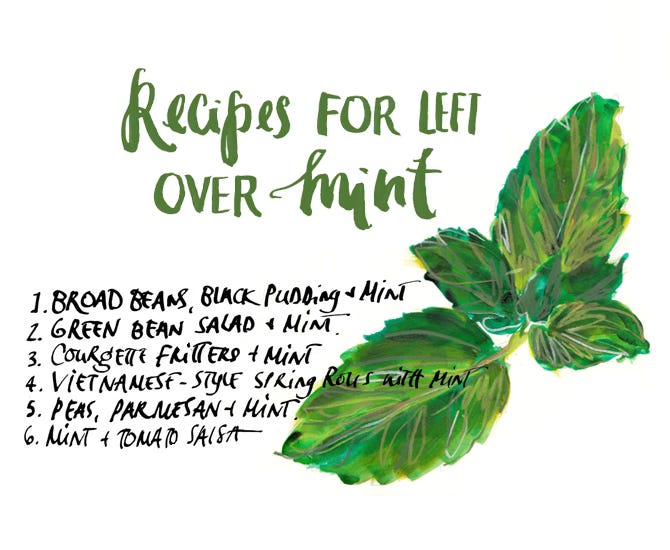 Recipes FOR LEFT
OVER mint
1. BROAD BEANS, BLACK PUDDING + MINT
2. GREEN BEAN SALAD + MINT.
3. COURGETTE FRITTERS + MINT
4. VIETNAMESE-STYLE SPRING ROLLS with MINT
5. PEAS, PARMESAN + MINT.
6. MINT + TOMATO SALSA